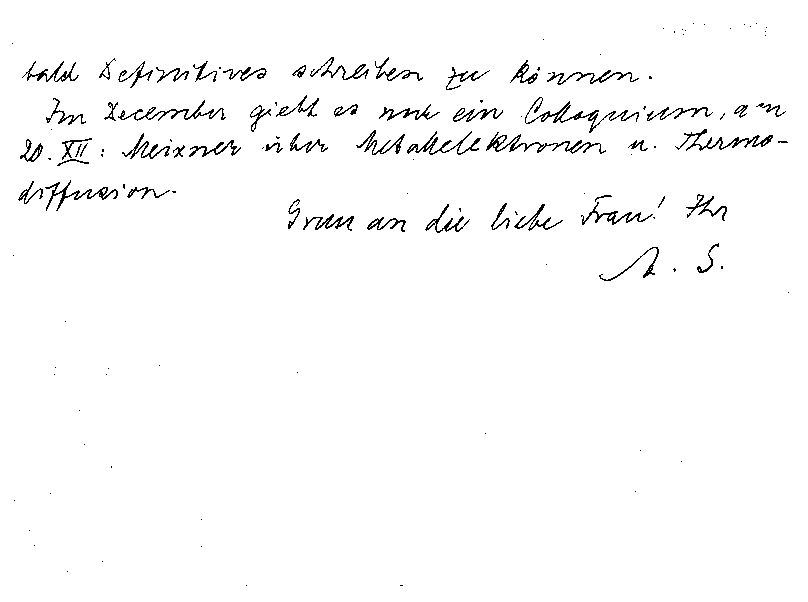 bald Definitives schreiben zu können.
Im December giebt es nur ein Colloquium, am
20. XII: Meixner über Metallelektronen u. Thermo-
diffusion.
Gruss an die liebe Frau! Ihr
A. S.